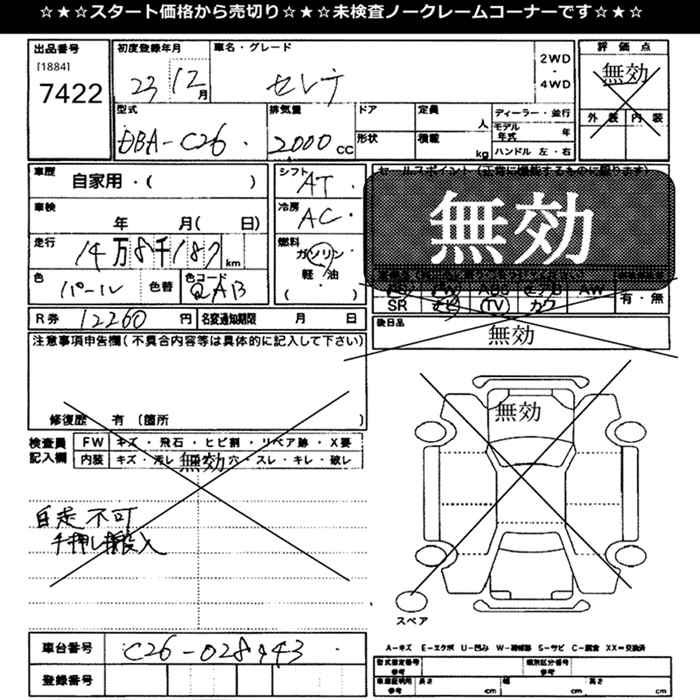 ☆★☆スタート価格から売切り☆★☆未検査ノークレームコーナーです☆★☆
出品番号
[1884]
7422
初度登録年月
23 12月
車名・グレード
セレナ
2WD
・
4WD
評価点
無効
外装 内装
型式
DBA-C26
排気量
2000 CC
ドア
形状
定員 人
積載 kg
ディーラー・並行
モデル年式 年
ハンドル 左・右
車歴
自家用・( )
シフト
AT
セールスポイント(正常に機能するものに限ります)
無効
車検
年 月( 日)
冷房
AC
走行
14万8千187km
燃料
ガソリン
軽・油
( )
色
パール
色替
色コード
QAB
SR ナビ TV カワ
AW
有・無
R券 12260円
名変通知期限 月 日
後日品
無効
注意事項申告欄(不具合内容等は具体的に記入して下さい)
修復歴 有〔箇所 〕
無効
検査員記入欄
FW キズ・飛石・ヒビ割・リペア跡・X要
内装 キズ・汚レ 無効 穴・スレ・キレ・破レ
自走不可
手押し搬入
スペア
車台番号
C26-028943
登録番号
A-キズ E-エクボ U-凹み W-補修跡 S-サビ C-腐食 XX=交換済
型式指定番号
参考
類別区分番号
参考
車庫証明用
参考
長さ cm
幅 cm
高さ cm